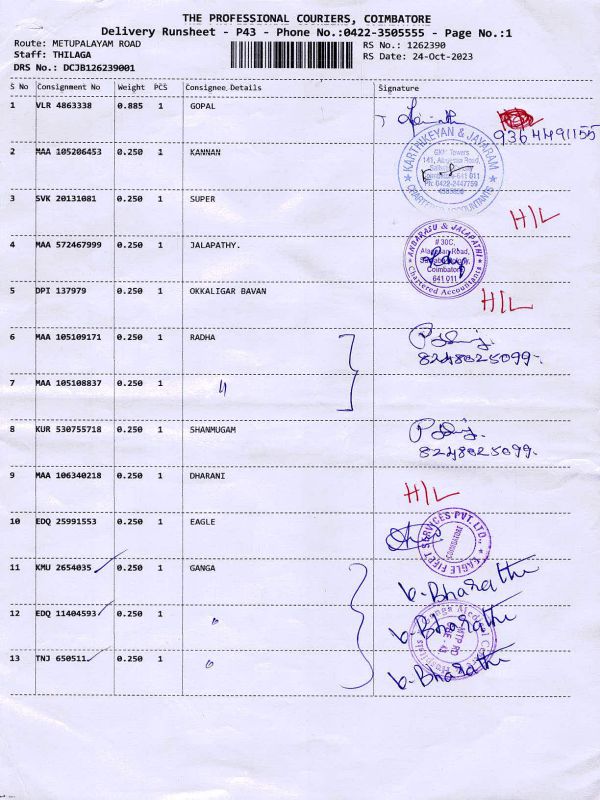 THE PROFESSIONAL COURIERS, COIMBATORE
Delivery Runsheet - P43 - Phone No.:0422-3505555 - Page No.:1
Route: METUPALAYAM ROAD RS No.: 1262390
Staff: THILAGA RS Date: 24-Oct-2023
DRS No.: DCJB126239001
S No Consignment No Weight PCS Consignee Details Signature
1 VLR 4863338 0.885 1 GOPAL
9364491155
2 MAA 105206453 0.250 1 KANNAN
KARTHIKEYAN & JAYARAM
GKM Towers
Coimbatore-641 011
Ph: 0422-2447759
CHARTERED ACCOUNTANTS
3 SVK 20131081 0.250 1 SUPER H/L
4 MAA 572467999 0.250 1 JALAPATHY.
ANBARASU & JALAPATHI
# 30C,
Coimbatore
641 011
Chartered Accountants
5 DPI 137979 0.250 1 OKKALIGAR BAVAN H/L
6 MAA 105109171 0.250 1 RADHA
8248025099.
7 MAA 105108837 0.250 1 "
8 KUR 530755718 0.250 1 SHANMUGAM
8248025099.
9 MAA 106340218 0.250 1 DHARANI H/L
10 EDQ 25991553 0.250 1 EAGLE
EAGLE FLEET SERVICES PVT. LTD.,
COIMBATORE
11 KMU 2654035 0.250 1 GANGA b. Bharathi
12 EDQ 11404593 0.250 1 " b. Bharathi
MTP RD
CBE - 43
13 TNJ 650511 0.250 1 " b. Bharathi